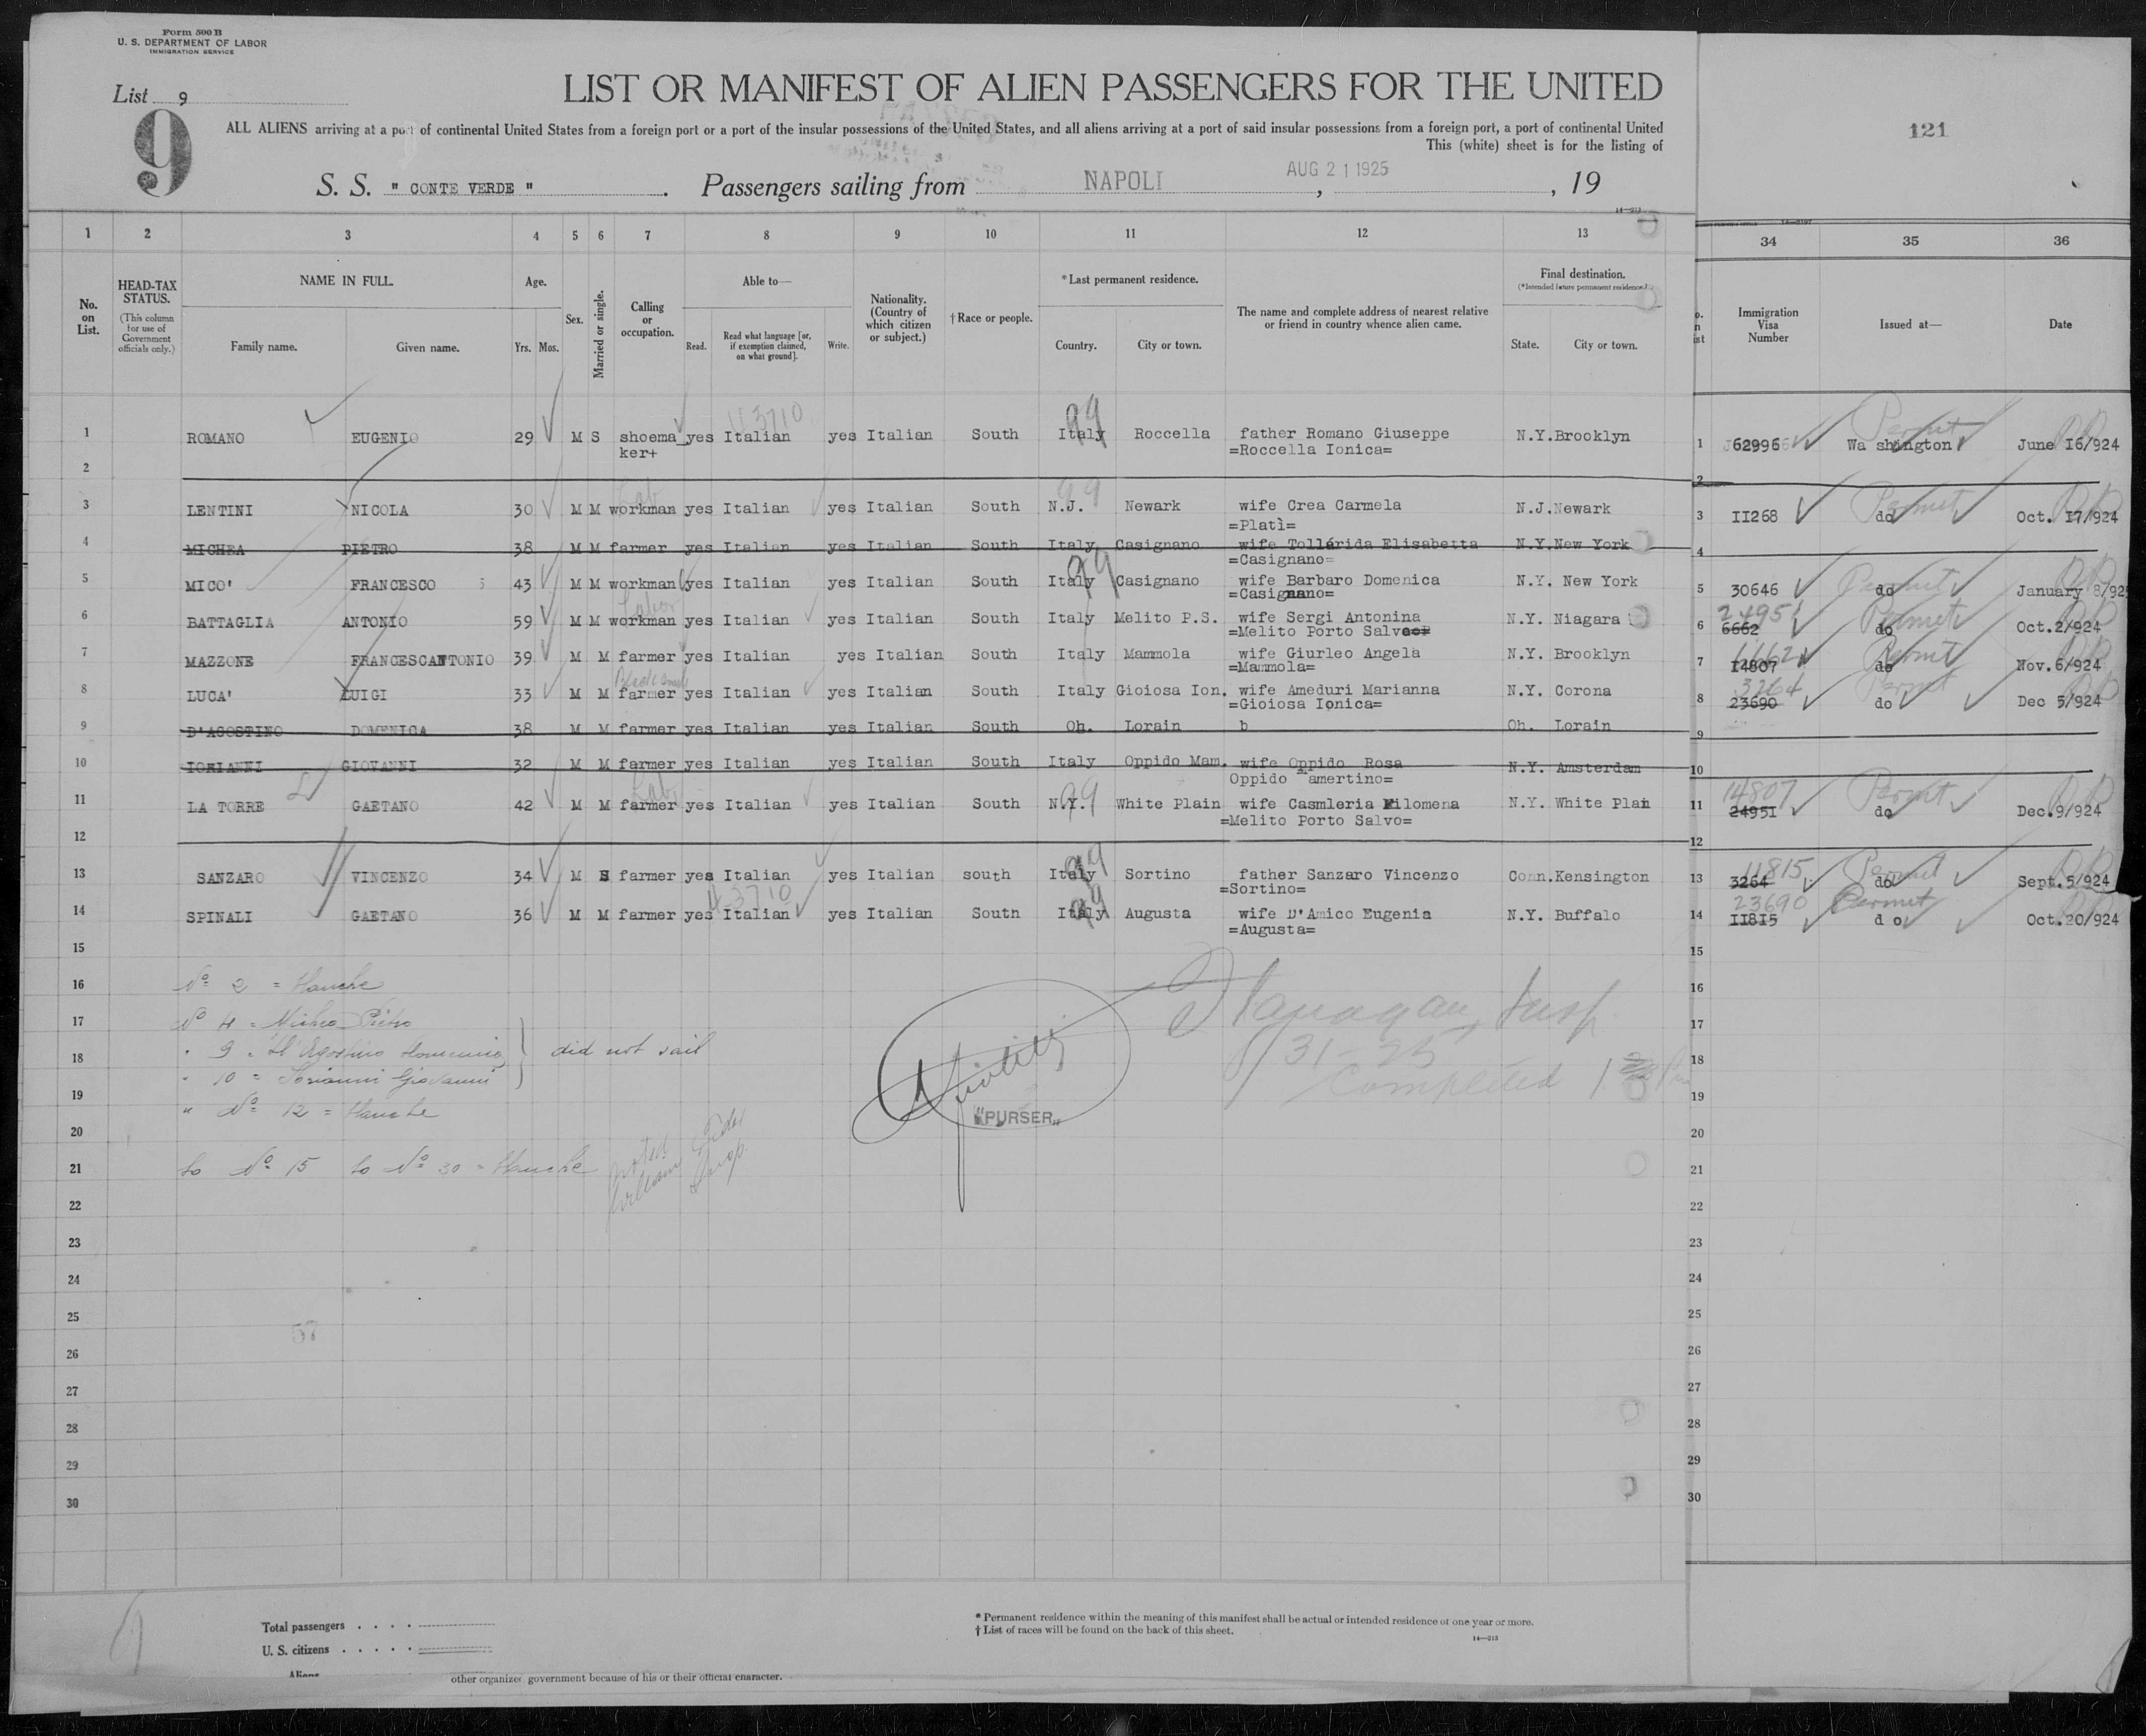 Form 500 B
U. S. DEPARTMENT OF LABOR
IMMIGRATION SERVICE
List 9
9
LIST OR MANIFEST OF ALIEN PASSENGERS FOR THE UNITED
ALL ALIENS arriving at a port of continental United States from a foreign port or a port of the insular possessions of the United States, and all aliens arriving at a port of said insular possessions from a foreign port, a port of continental United
This (white) sheet is for the listing of
121
S. S. " CONTE VERDE ". Passengers sailing from NAPOLI, AUG 21 1925, 19
14—213
1 2 3 4 5 6 7 8 9 10 11 12 13 34 35 36
No. on List.
HEAD-TAX STATUS. (This column for use of Government officials only.)
NAME IN FULL.
Family name. Given name.
Age. Yrs. Mos.
Sex.
Married or single.
Calling or occupation.
Able to—
Read. Read what language [or, if exemption claimed, on what ground]. Write.
Nationality. (Country of which citizen or subject.)
† Race or people.
* Last permanent residence.
Country. City or town.
The name and complete address of nearest relative or friend in country whence alien came.
Final destination.
(* Intended future permanent residence.)
State. City or town.
Immigration Visa Number
Issued at—
Date
U3710 99 Permit
1 ROMANO EUGENIO 29 M S shoema_ yes Italian yes Italian South Italy Roccella father Romano Giuseppe N.Y. Brooklyn 1 62996 Wa shington June I6/924
ker+ =Roccella Ionica=
2 2
Lab 99 Permit
3 LENTINI NICOLA 30 M M workman yes Italian yes Italian South N.J. Newark wife Crea Carmela N.J. Newark 3 II268 do Oct. I7/924
=Platì=
4 MICHEA PIETRO 38 M M farmer yes Italian yes Italian South Italy Casignano wife Tollárida Elisabetta N.Y. New York 4
=Casignano=
99 Permit
5 MICO' FRANCESCO 43 M M workman yes Italian yes Italian South Italy Casignano wife Barbaro Domenica N.Y. New York 5 30646 do January 8/925
=Casignano=
Labor 24951 Permit
6 BATTAGLIA ANTONIO 59 M M workman yes Italian yes Italian South Italy Melito P.S. wife Sergi Antonina N.Y. Niagara 6 6662 do Oct.2/924
=Melito Porto Salvo
Permit
7 MAZZONE FRANCESCANTONIO 39 M M farmer yes Italian yes Italian South Italy Mammola wife Giurleo Angela N.Y. Brooklyn 7 I4807 do Nov.6/924
=Mammola=
3264 Permit
8 LUCA' LUIGI 33 M M farmer yes Italian yes Italian South Italy Gioiosa Ion. wife Ameduri Marianna N.Y. Corona 8 23690 do Dec 5/924
=Gioiosa Ionica=
9 D'AGOSTINO DOMENICA 38 M M farmer yes Italian yes Italian South Oh. Lorain b Oh. Lorain 9
10 IORIANNI GIOVANNI 32 M M farmer yes Italian yes Italian South Italy Oppido Mam. wife Oppido Rosa N.Y. Amsterdam 10
Oppido Mamertino=
Lab 99 14807 Permit
11 LA TORRE GAETANO 42 M M farmer yes Italian yes Italian South N.Y. White Plain wife Casmleria Filomena N.Y. White Plain 11 2495I do Dec.9/924
=Melito Porto Salvo=
12 12
99 11815 Permit
13 SANZARO VINCENZO 34 M S farmer yes Italian yes Italian south Italy Sortino father Sanzaro Vincenzo Conn. Kensington 13 3264 do Sept.5/924
=Sortino=
U-3710 99 23690 Permit
14 SPINALI GAETANO 36 M M farmer yes Italian yes Italian South Italy Augusta wife D'Amico Eugenia N.Y. Buffalo 14 II8I5 d o Oct.20/924
=Augusta=
15 15
16 Nº 2 = Manche 16
17 Nº 4 = Michea Pietro 17
18 " 9 = D'Agostino Domenica did not sail 18
" 10 = Iorianni Giovanni
19 " Nº 12 = Manche 19
20 20
21 to Nº 15 to Nº 30 = Manche 21
Flanagan, Insp.
8/31-25
Completed 1
"PURSER"
noted
William Insp.
22 22
23 23
24 24
25 25
57
26 26
27 27
28 28
29 29
30 30
Total passengers . . . .
U. S. citizens . . . . .
Aliens
* Permanent residence within the meaning of this manifest shall be actual or intended residence of one year or more.
† List of races will be found on the back of this sheet.
14—213
other organized government because of his or their official character.